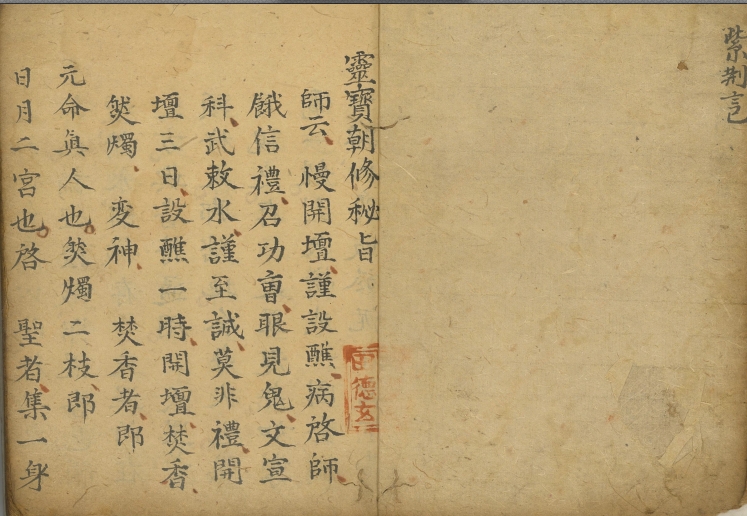 紫荆
靈寶朝修秘旨
師云、慢開壇、謹設醮、病啓師、
餓信禮、召功曺、眼見鬼、文宣
科、武敕水、謹至誠、莫非禮、開
壇三日、設醮一時、開壇、焚香、
燭、変神、焚香者、即
元命眞人也。燭二枝、即
日月二宮也。啓 聖者、集一身
德